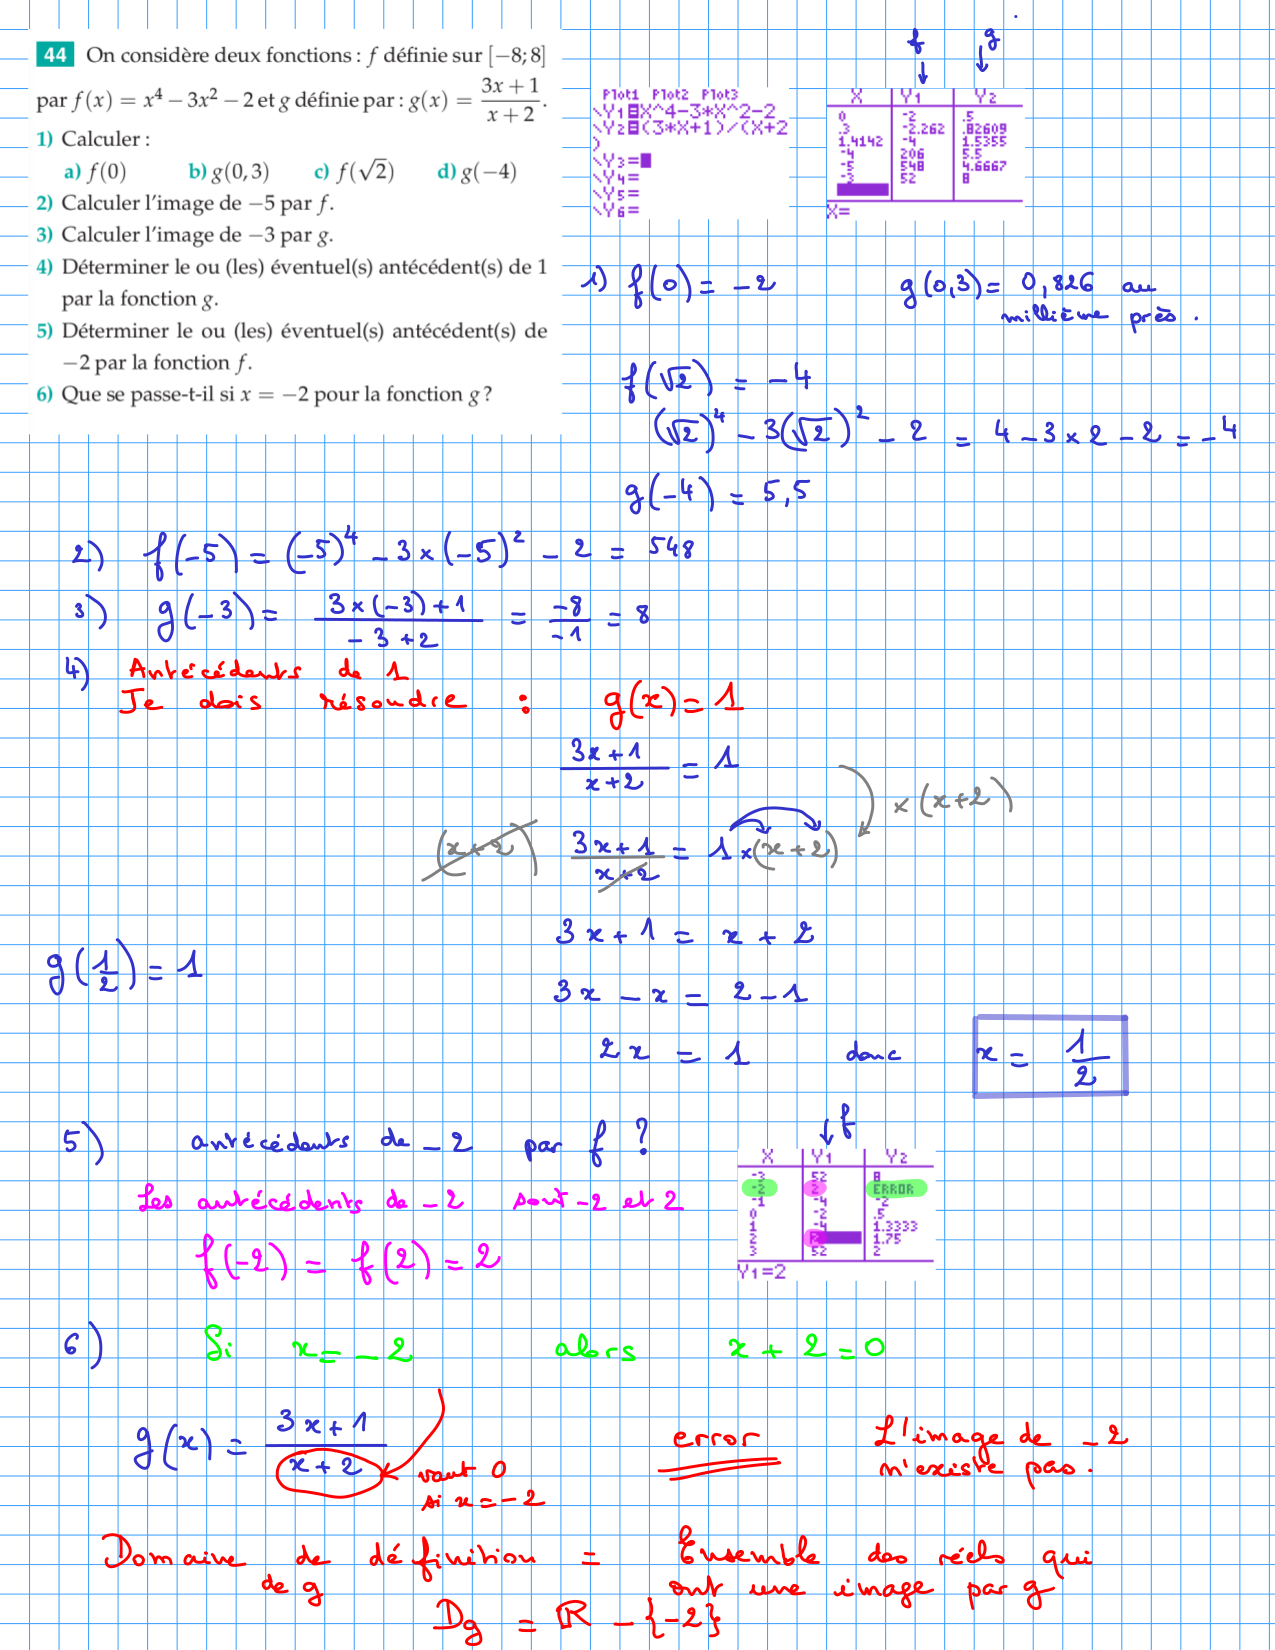 44 On considère deux fonctions : f définie sur [−8; 8]
par f(x) = x⁴ − 3x² − 2 et g définie par : g(x) = (3x + 1)/(x + 2).
1) Calculer :
a) f(0) b) g(0, 3) c) f(√2) d) g(−4)
2) Calculer l'image de −5 par f.
3) Calculer l'image de −3 par g.
4) Déterminer le ou (les) éventuel(s) antécédent(s) de 1
par la fonction g.
5) Déterminer le ou (les) éventuel(s) antécédent(s) de
−2 par la fonction f.
6) Que se passe-t-il si x = −2 pour la fonction g ?
Plot1 Plot2 Plot3
\Y1=X^4-3*X^2-2
\Y2=(3*X+1)/(X+2
)
\Y3=
\Y4=
\Y5=
\Y6=
f g
X Y1 Y2
0 -2 .5
.3 -2.262 .82609
1.4142 -4 1.5355
-4 206 5.5
-5 548 4.6667
-3 52 8
X=
1) f(0) = -2 g(0,3) = 0,826 au
millième près.
f(√2) = -4
(√2)⁴ - 3(√2)² - 2 = 4 - 3 × 2 - 2 = -4
g(-4) = 5,5
2) f(-5) = (-5)⁴ - 3 × (-5)² - 2 = 548
3) g(-3) = (3 × (-3) + 1)/(-3 + 2) = -8/-1 = 8
4) Antécédents de 1
Je dois résoudre : g(x) = 1
(3x + 1)/(x + 2) = 1
× (x + 2)
(x + 2) (3x + 1)/(x + 2) = 1 × (x + 2)
3x + 1 = x + 2
g(1/2) = 1
3x - x = 2 - 1
2x = 1 donc x = 1/2
5) antécédents de -2 par f ?
f
Les antécédents de -2 sont -2 et 2
f(-2) = f(2) = 2
X Y1 Y2
-3 52 8
-2 2 ERROR
-1 -4 -2
0 -2 .5
1 -4 1.3333
2 2 1.75
3 52 2
Y1=2
6) Si x = -2 alors x + 2 = 0
g(x) = (3x + 1)/(x + 2)
vaut 0
si x = -2
error
L'image de -2
n'existe pas.
Domaine de définition = Ensemble des réels qui
de g ont une image par g
Dg = ℝ - {-2}